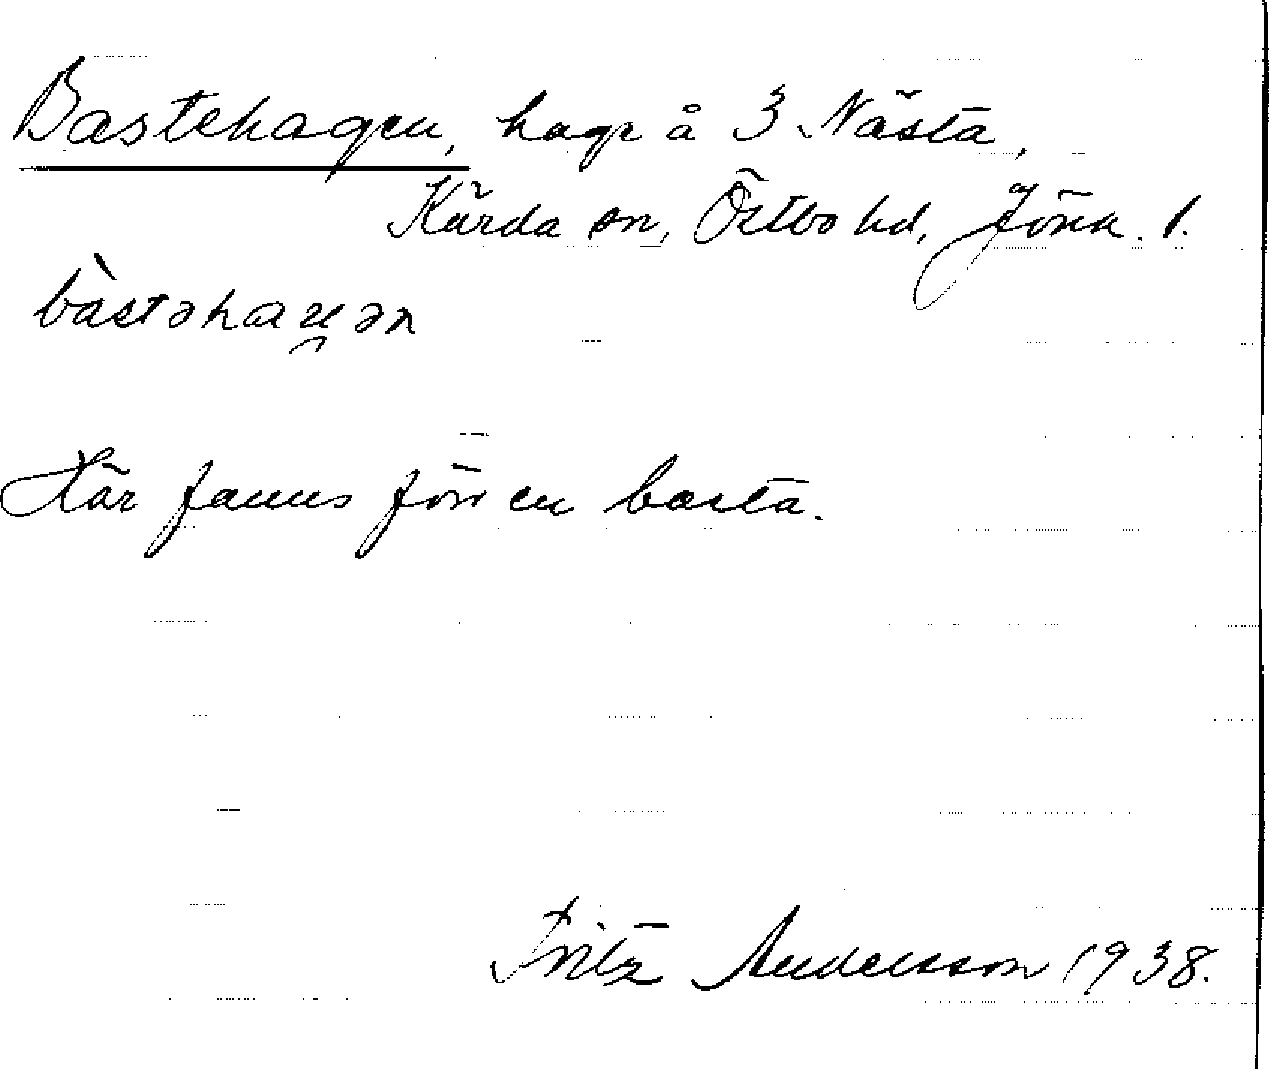 Bastehagen, hage å 3 Nästa,
Kärda sn, Östbo hd, Jönk. l.
bàstəhaɡən
Här fanns förr en basta.
Fritz Andersson 1938.